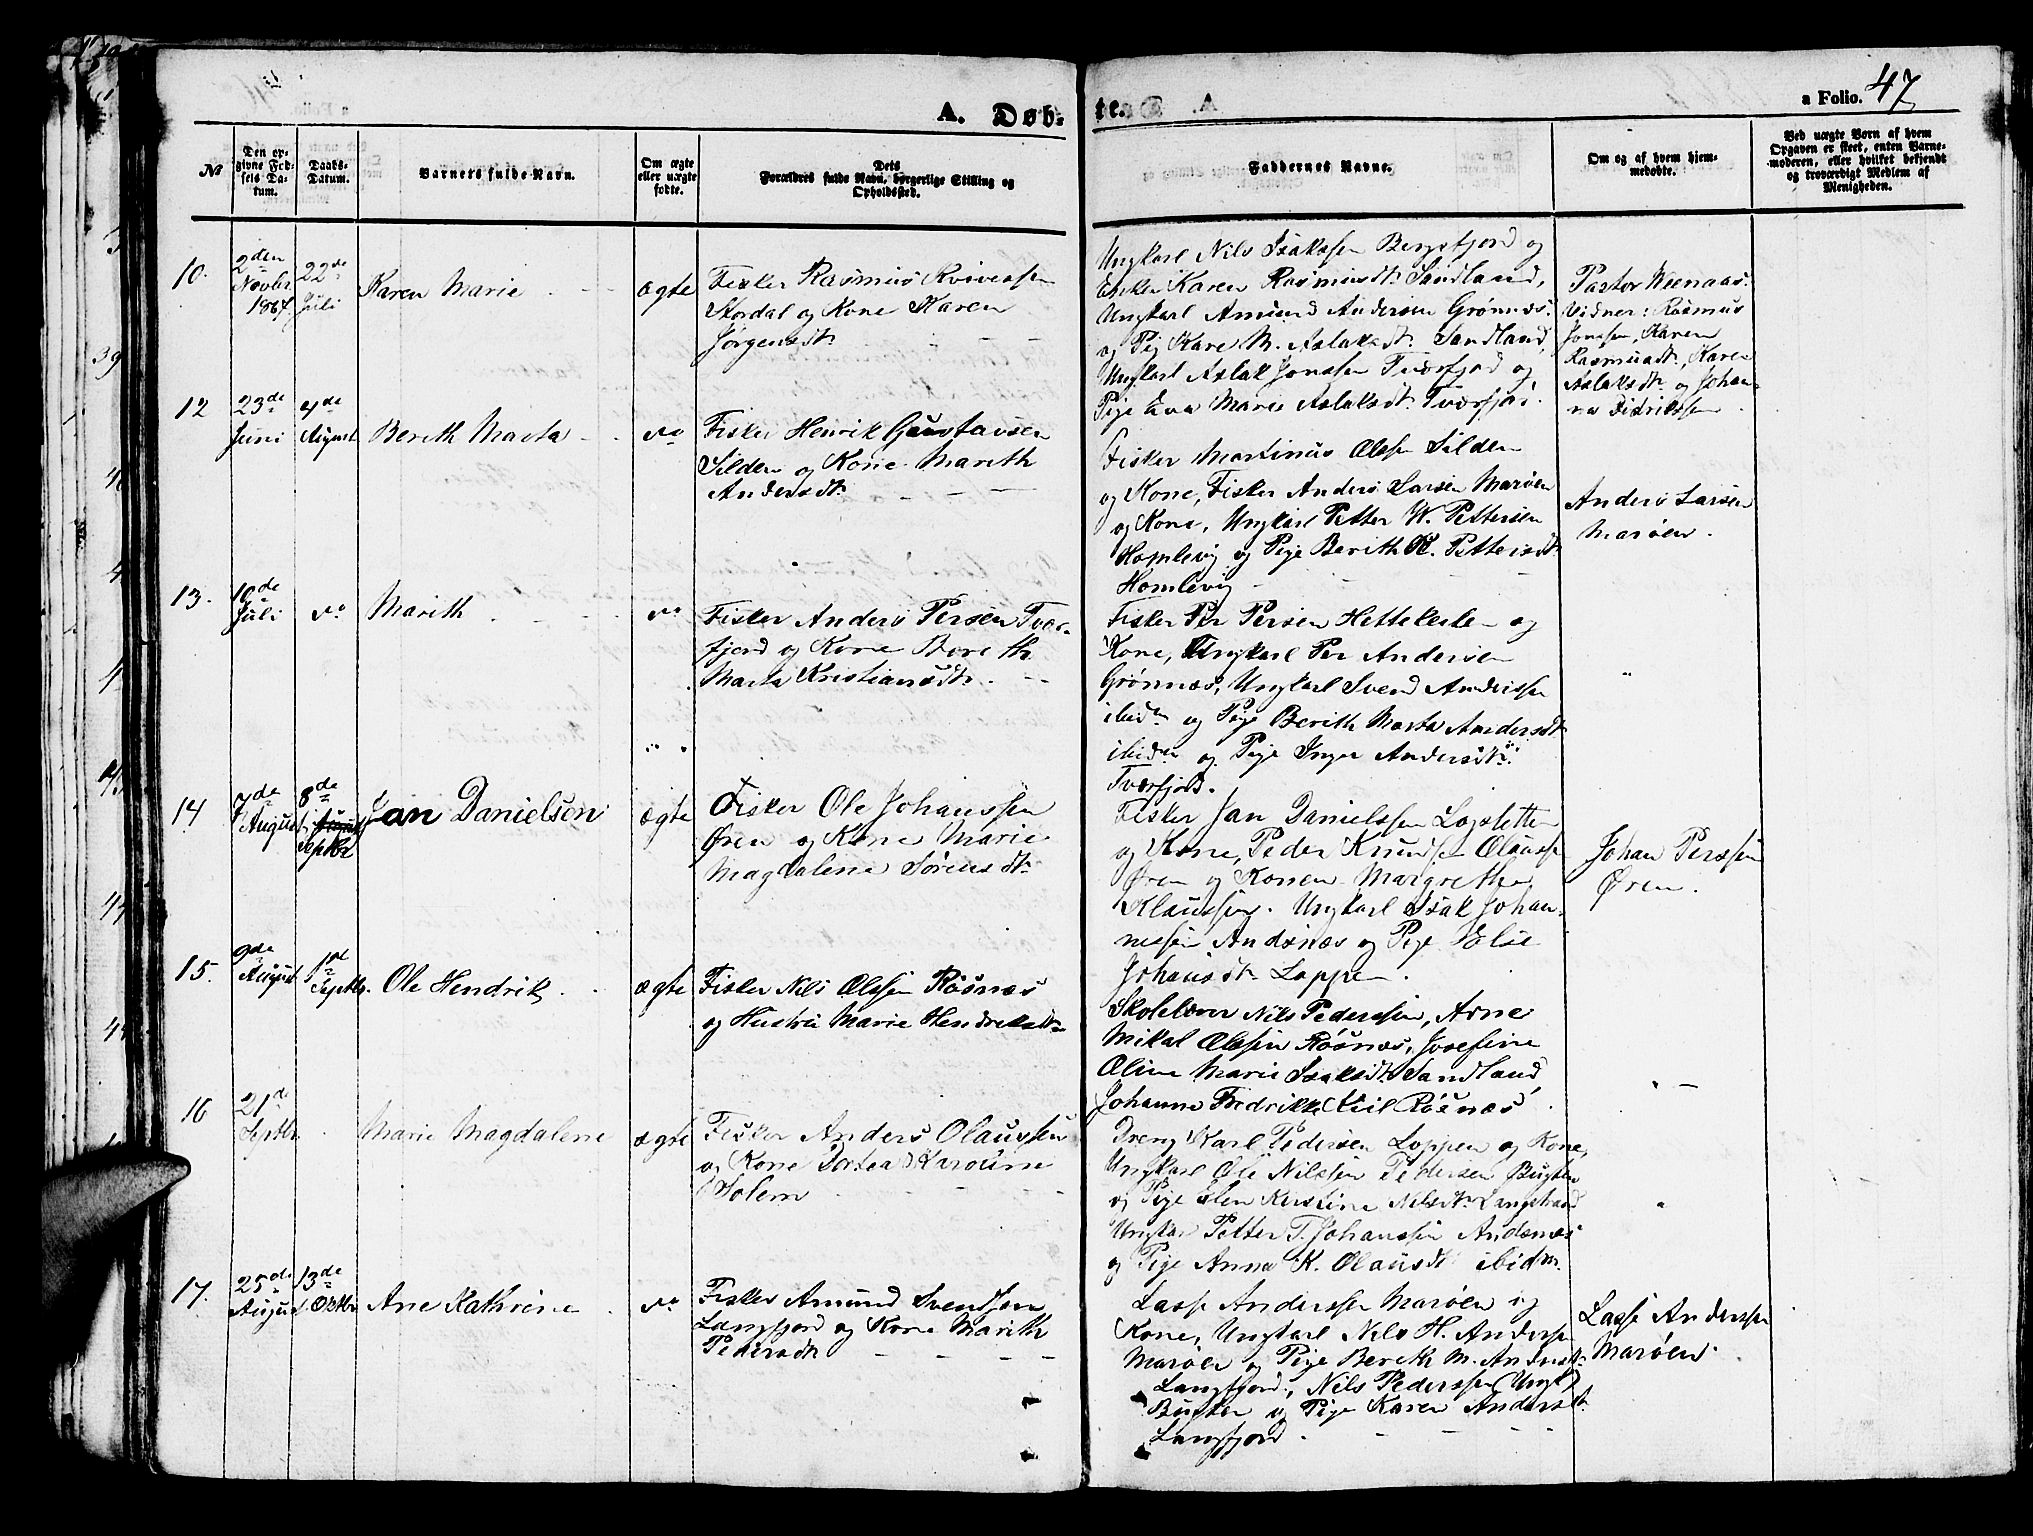 A. Døb-
te. A.
a Folio. 47
№
Den op-
givne Fød-
sels Da-
tum.
Daabs-
Datum.
Barnets fulde Navn.
Om ægte
eller uægte
fødte.
Dets
Forældres fulde Navn, borgerlige Stilling og
Opholdssted.
Faddernes Navne.
Om og af hvem hjem-
medøbte.
Ved uægte Børn af hvem
Opgaven er skeet, enten Barne-
moderen, eller hvilket bekjendt
og troværdigt Medlem af
Menigheden.
10.
2den
Novbr
1867
22de
Juli
Karen Marie
ægte
Fisker Rasmus
Stordal og Kone Karen
Jørgensdtr
Ungkarl Nils Isakssen Bergsfjord og
Enken Karen Rasmusdtr Sandland,
Ungkarl Amund Andersen Grønnæs
og Pig Kare M. Aslaksdtr Sandland,
Ungkarl Aslak Jonssen Tværfjord og
Pige Eva Marie Aslaksdtr Tværfjor.
Pastor Weenaas.
Vidner: Rasmus
Jonssen, Karen
Rasmusdtr, Karen
Aslaksdtr og Johan-
na Didrikssen
12
23de
Juni
4de
August
Berith Marta
do
Fisker Henrik Gustavsen
Silden og Kone Marith
Andersdtr
Fisker Martinus Olssen Silden
og Kone, Fisker Anders Larsen Marøen
og Kone, Ungkarl Petter W. Pettersen
Homlevig og Pige Berith K. Pettersdtr
Homlevig
Anders Larsen
Marøen.
13.
10de
Juli
do
Marith
do
Fisker Anders Persen Tvær-
fjord og Kone Bereth
Marta Kristiansdtr.
Fisker Per Persen og
Kone, Ungkarl Per Andersen
Grønnæs, Ungkarl Svend Anderssen
ibidm og Pige Berith Marta Andersdtr
ibidm og Pige Inger Andersdtr
Tværfjord.
14
7de
August
8de
Septbr
Jan Danielson
ægte
Fisker Ole Johanssen
Øren og Kone Marie
Magdalene Sørensdtr
Fisker Jan Danielssen Logsletten
og Kone, Peder Knudsen Olaussen
Øren og Konen Margrethe
Klaussen. Ungkarl Isak Johan-
nessen Andsnæs og Pige Else
Johansdtr Loppen.
Johan Perssen
Øren.
15.
9de
August
1st
Septbr.
Ole Hendrik
ægte
Fisker Nils Olssen Røsnæs
og Hustru Marie Hendriksdtr
Skolelærer Nils Pederssen, Arne
Mikal Olssen Røsnæs, Josefine
Oline Marie Isaksdtr Sandland,
Johanna Fredrikke Røsnæs
16
21d
Septbr
Marie Magdalene
ægte
Fisker Anders Olaussen
og Kone Dortea Karoline
Solem
Dreng Karl Pedersen Loppen og Kone,
Ungkarl Ole Nilssen Pedersen Bugten
og Pige Elen Kirstine Nilsdtr Langstrand
Ungkar Petter T. Johanssen Andsnæs
og Pige Anna K. Olausdtr ibidm.
17.
25de
August
13de
Oktbr
Ane Kathrine
do
Fisker Amund Svendsen
Langfjord og Kone Marith
Pedersdtr
Lasse Anderssen Marøen og
Kone, Ungkarl Nils H. Anderssen
Marøen og Pige Berith M. Andersdtr
Langfjord, Nils Pederssen (Ungk)
Bugten og Pige Karen Andersdtr
Langfjord.
Lasse Anderssen
Marøen.